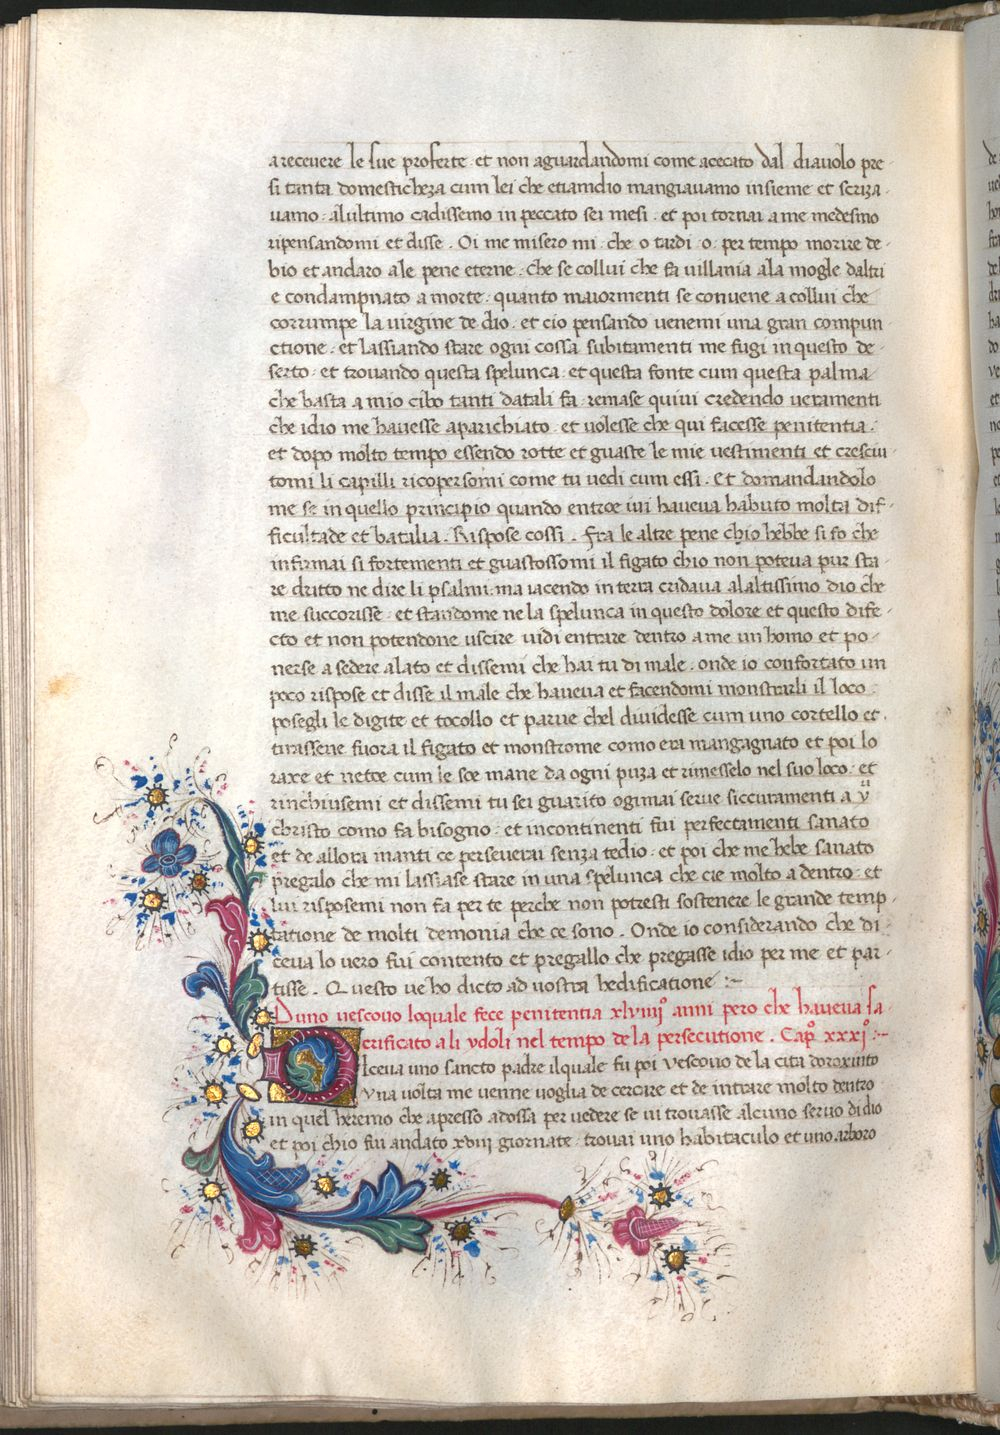 a recevere le sue proferte · et non aguardandomi come acecato dal diavolo pre-
si tanta domesticheza cum lei che etiamdio mangiavamo insieme et scriza-
vamo · al ultimo cadissemo in peccato sei mesi · et poi tornai a me medesmo
ripensandomi et disse . Oi me misero mi · che o tardi · o · per tempo morire de-
bio et andaro a le pene eterne · che se collui che fa villania ala mogle daltri
e condampnato a morte · quanto maiormenti se convene a collui che
corrumpe la virgine de dio · et cio pensando venemi una gran compun-
ctione · et lassando stare ogni cossa subitamenti me fugi in questo de-
serto · et trovando questa spelunca · et questa fonte cum questa palma
che basta a mio cibo tanti datali fa · remase quivi credendo veramenti
che idio me havesse aparichiato · et volesse che qui facesse penitentia .
et dopo molto tempo essendo rotte et guaste le mie vestimenti et cresciu-
tomi li capilli ricopersomi come tu vedi cum essi . Et domandandolo
me se in quello principio quando entroe ivi haveva habuto molta dif-
ficultade et batalia . Rispose cossi . Fra le altre pene chio hebbe si fo che
infirmai si fortementi et guastossomi il figato chio non poteva pur sta-
re dritto ne dire li psalmi · ma iacendo in terra cridava al altissimo dio che
me succorisse · et standome ne la spelunca in questo dolore et questo dife-
cto et non potendone uscire vidi entrare dentro a me un homo et po-
nerse a sedere a lato et dissemi che hai tu di male · onde io confortato un
poco rispose et disse il male che haveva et facendomi monstrarli il loco
posegli le digite et tocollo et parve chel dividesse cum uno cortello et .
tirassene fuora il figato et monstrome como era mangagnato et poi lo
raxe et netoe cum le soe mane da ogni puza et rimesselo nel suo loco · et
rinchiusemi et dissemi tu sei guarito ogimai serve siccuramenti a
christo como fa bisogno · et incontinenti fui perfectamenti sanato
et de allora inanti ce perseverai senza tedio · et poi che me hebe sanato
pregalo che mi lassase stare in una spelunca che cie molto a dentro · et
lui risposemi non fa per te perche non potresti sostenere le grande temp-
tatione de molti demonia che ce sono . Onde io considerando che di-
ceva lo vero fui contento et pregallo che pregasse idio per me et par-
tisse . Questo ve ho dicto ad vostra hedificatione :~
D uno vescovo loquale fece penitentia xlviiijº anni pero che haveva sa-
crificato a li ydoli nel tempo de la persecutione . Capº xxxjº :~
Diceva uno sancto padre ilquale fu poi vescovo de la cita doroxinto
Una volta me venne voglia de cercire et de intrare molto dentro
in quel heremo che apresso adossa per vedere se vi trovasse alcuno servo di dio
et poi chio fui andato xviij giornate · trovai uno habitaculo et uno arboro